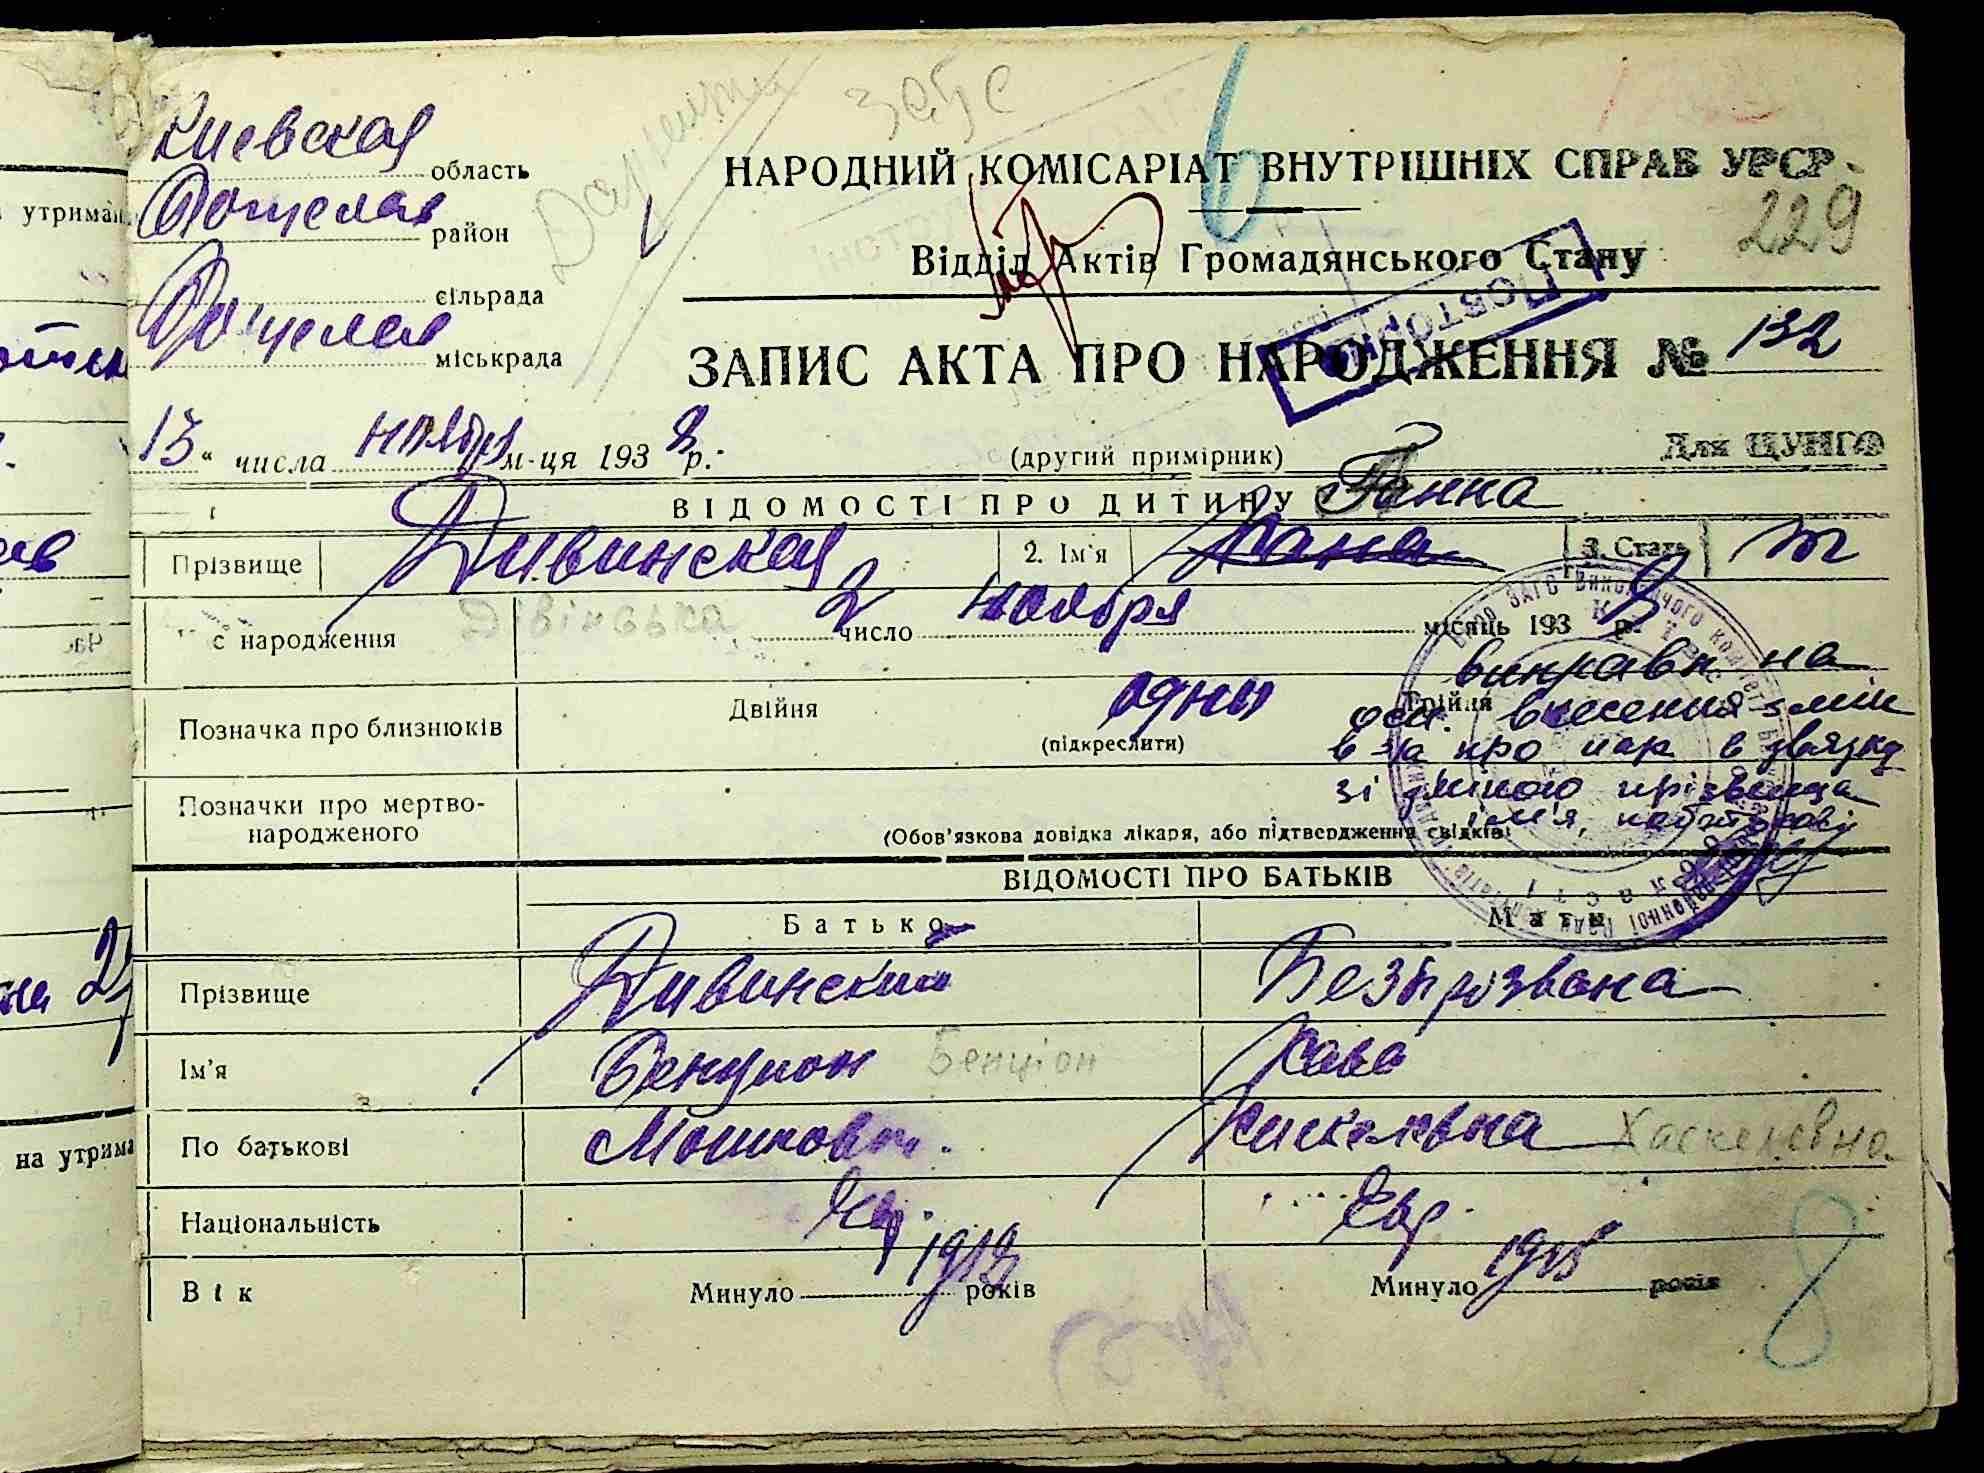 Киевская область
район
сільрада
міськрада
загс
НАРОДНИЙ КОМІСАРІАТ ВНУТРІШНІХ СПРАВ УРСР
229
Відділ Актів Громадянського Стану
ПОВТОРНЕ
ЗАПИС АКТА ПРО НАРОДЖЕННЯ № 132
13 " числа ноября м-ця 1938 р.
(другий примірник)
Для ЦУНГО
ВІДОМОСТІ ПРО ДИТИНУ
Ганна
Прізвище Дивинская 2. Ім'я Хана 3. Стать
с народження Дівінська 2 число ноября місяць 1938 р.
виправл на
Позначка про близнюків Двійня одны Трійня
(підкреслити)
осн. внесення змін
в за про нар в звязку
зі зміною прізвища
ім'я, по батькові
Позначки про мертво-
народженого
(Обов'язкова довідка лікаря, або підтвердження свідків)
ВІДОМОСТІ ПРО БАТЬКІВ
Батько Мати
Прізвище Дивинский Безпрізвана
Ім'я Бенцион Бенціон Хава
По батькові Мошкович Хаскелевна
Національність Евр. Евр.
Вік Минуло 1913 років Минуло 1915 років
8
утриман
на утрима